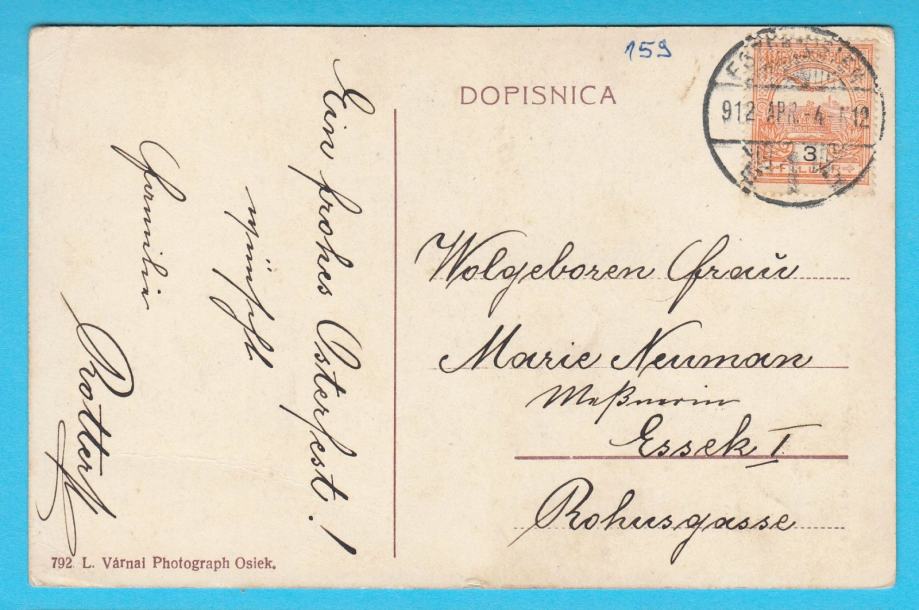 159
DOPISNICA
912 APR.-4.
3
Ein frohes Osterfest!
wünscht
Familie
Rottert
Wolgeboren Frau
Marie Neuman
Meßnerin
Essek I.
Rohusgasse
792 L. Várnai Photograph Osiek.